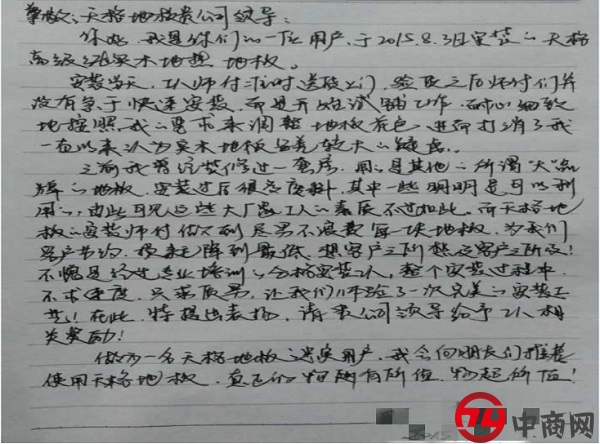 尊敬的天格地板贵公司领导:
你好,我是你们的一位用户,于2015.8.3日安装的天格
高级之路实木地热地板。
安装当天,工人师付准时送货上门,验收之后师付们并
没有急于快速安装,而是开始试铺工作,耐心细致
地按照我的要求来调整地板花色,进而打消了我
一直以来认为实木地板色差较大的疑虑。
之前我曾经装修过一套房,用的是其他的所谓"大"品
牌的地板,安装过后很多废料,其中一些明明是可以利
用的,由此可见这些大厂家工人的素质不过如此。而天格地
板的安装师付做到尽量不浪费每一块地板,为我们
客户节约,损耗降到最低,想客户之所想急客户之所急!
不愧是经过专业培训的合格安装工人,整个安装过程中
不求速度,只求质量,让我们体验了一次完美的安装工
艺!在此,特提出表扬,请贵公司领导给予工人相
关奖励!
做为一名天格地板忠实用户,我会向朋友们推荐
使用天格地板,真正的物有所值,物超所值!
中商网